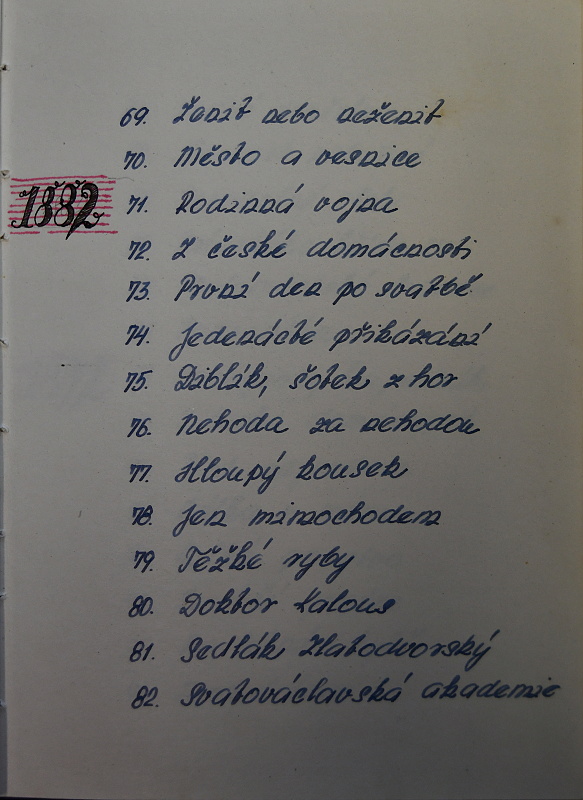 69. Ženit nebo neženit
70. Město a vesnice
1882
71. Rodinná vojna
72. Z české domácnosti
73. První den po svatbě
74. Jedenácté přikázání
75. Diblík, šotek z hor
76. Nehoda za nehodou
77. Hloupý kousek
78. Jen mimochodem
79. Těžké ryby
80. Doktor Kalous
81. Sedlák Zlatodvorský
82. Svatováclavská akademie